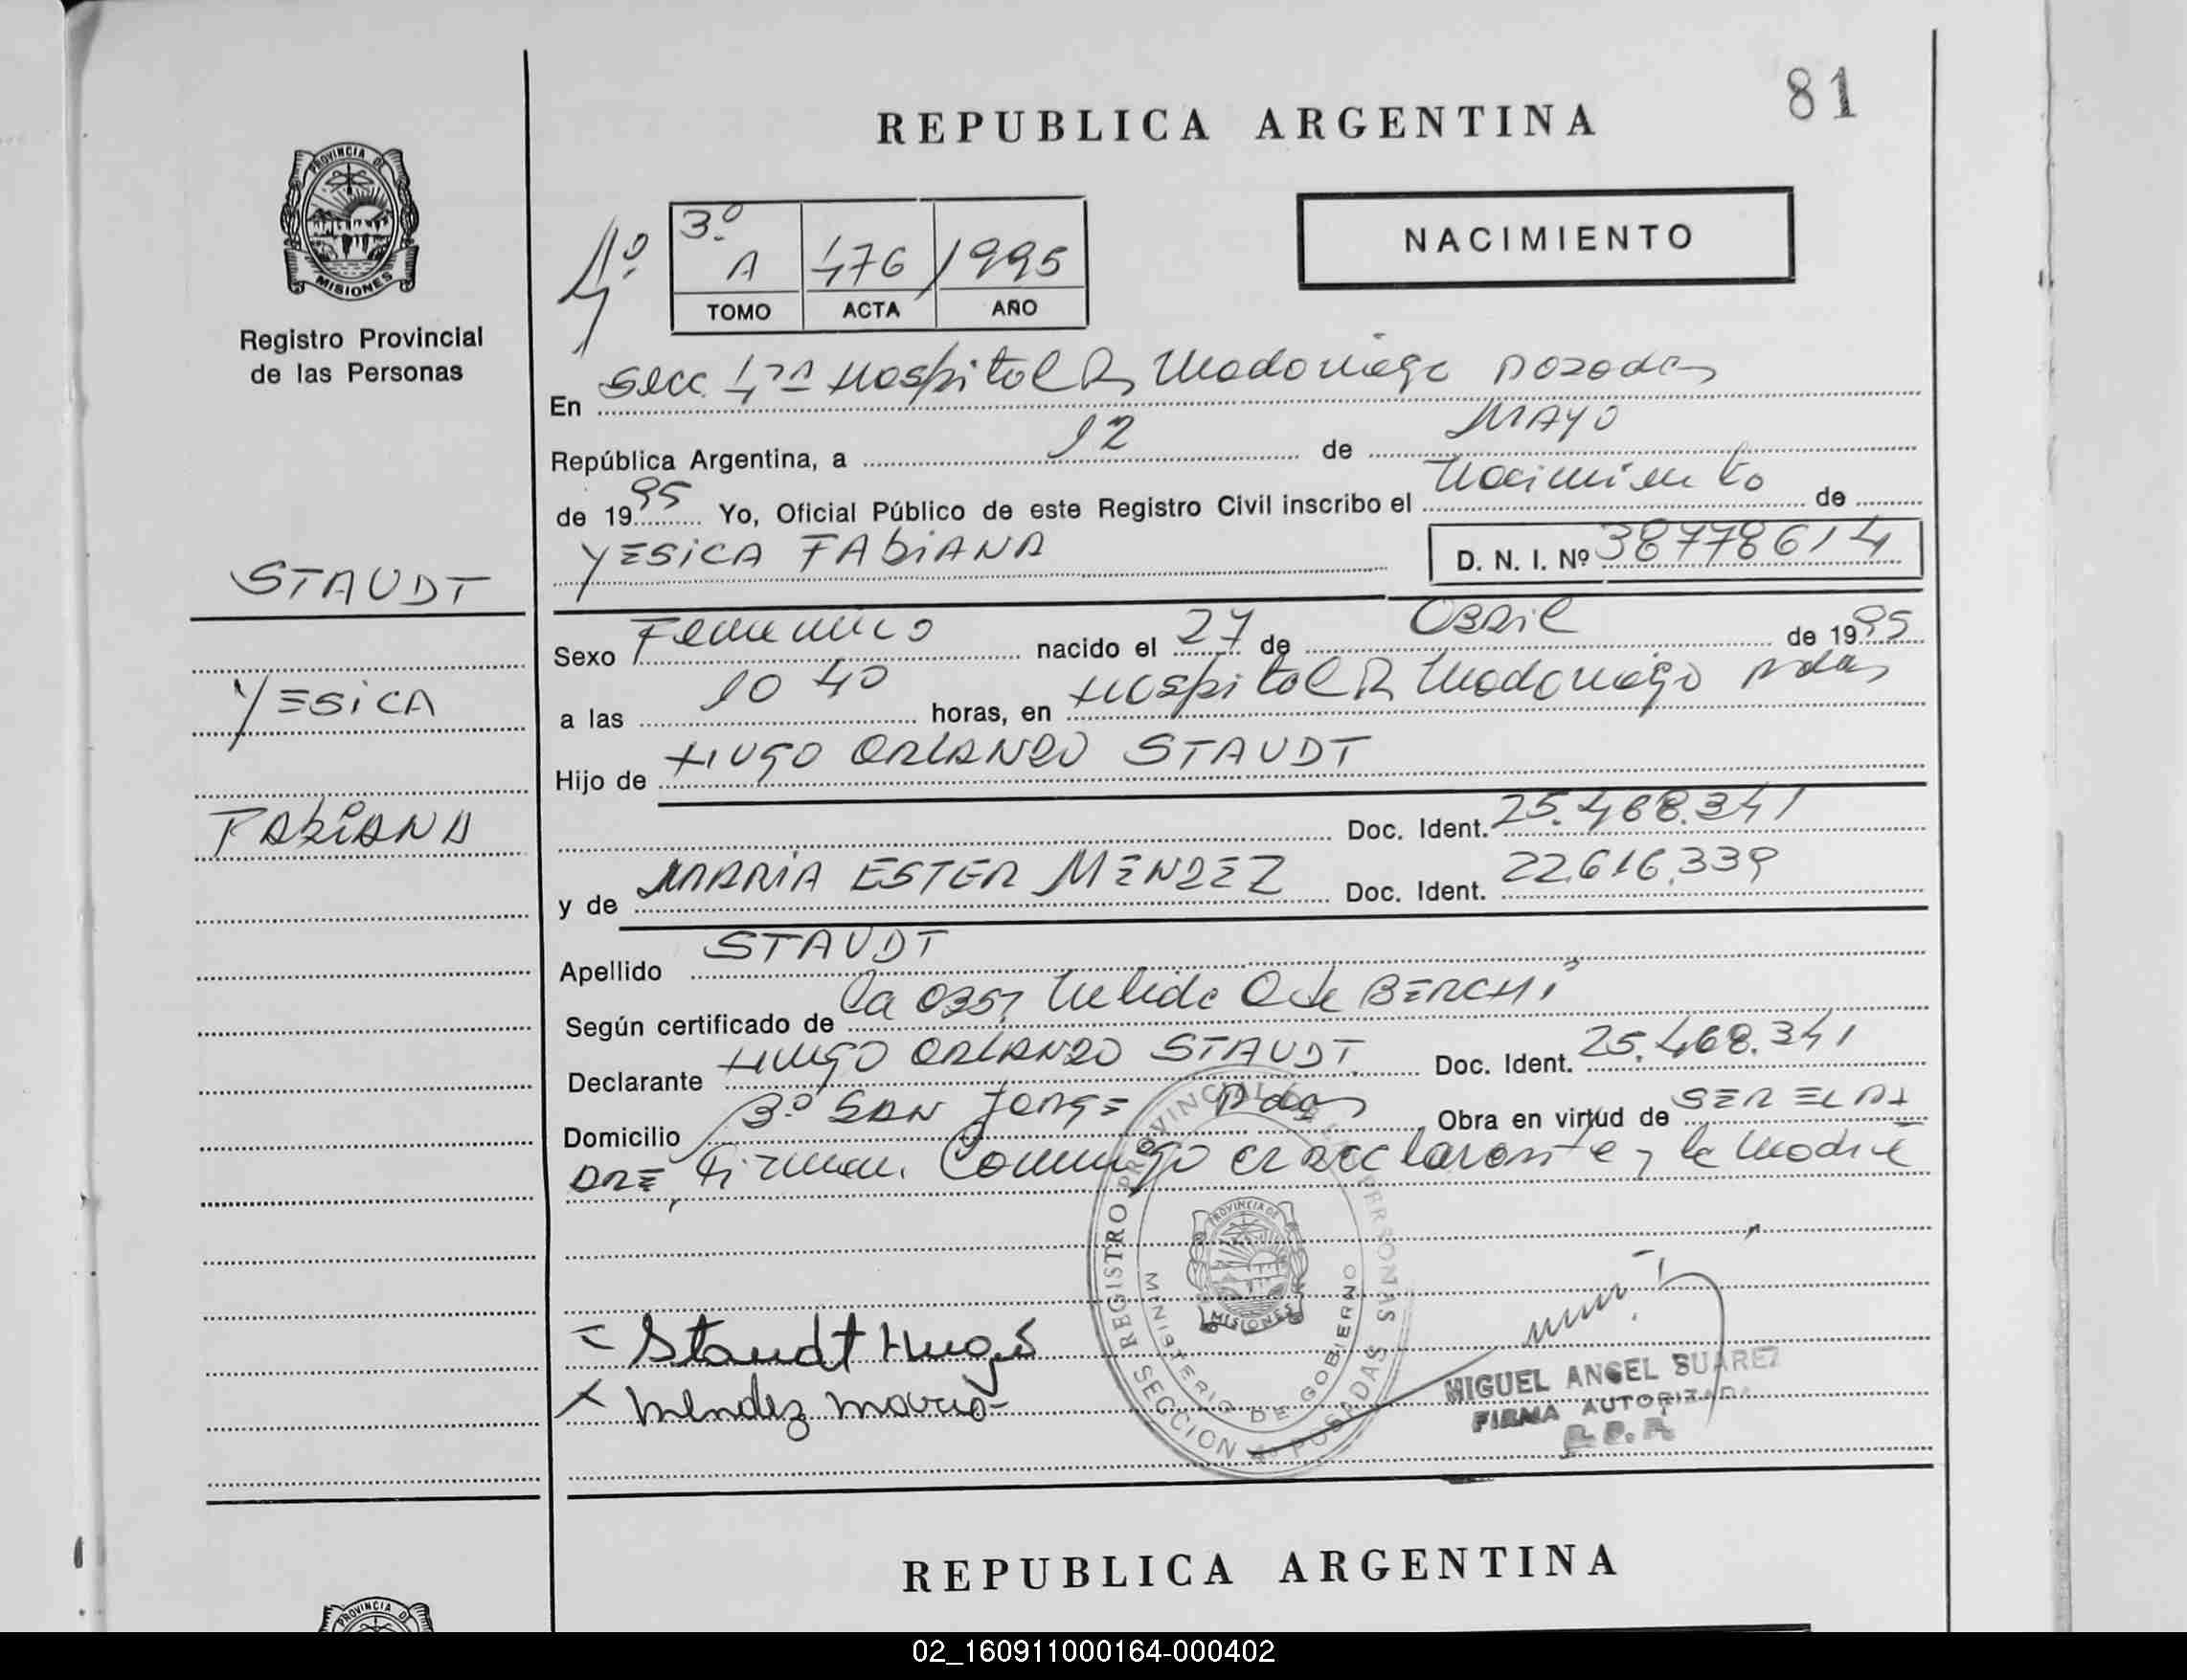 81
REPUBLICA ARGENTINA
PROVINCIA DE
MISIONES
Registro Provincial
de las Personas
4º
3º
A 476 1995
TOMO ACTA AÑO
NACIMIENTO
En Secc 4ta Hospital R Madariaga Posadas
República Argentina, a 12 de MAYO
de 1995 Yo, Oficial Público de este Registro Civil inscribo el Nacimiento de
YESICA FABIANA
D. N. I. Nº 38778614
STAUDT
YESICA
FABIANA
Sexo Femenino nacido el 27 de Abril de 1995
a las 10 40 horas, en Hospital R Madariaga Pdas
Hijo de HUGO ORLANDO STAUDT
Doc. Ident. 25.468.341
y de MARIA ESTER MENDEZ Doc. Ident. 22.616.339
Apellido STAUDT
Según certificado de la Obst Nelida de BERCHI
Declarante HUGO ORLANDO STAUDT. Doc. Ident. 25.468.341
Domicilio Bº SAN JORGE Pdas Obra en virtud de SER EL PA
DRE, Firman Conmigo el declarante y la Madre
REGISTRO PROVINCIAL DE LAS PERSONAS
SECCION 4º POSADAS
MINISTERIO DE GOBIERNO
PROVINCIA DE
MISIONES
Staudt Hugo
Mendez Maria
MIGUEL ANGEL SUAREZ
FIRMA AUTORIZADA
R. P. P.
REPUBLICA ARGENTINA
PROVINCIA D
02_160911000164-000402